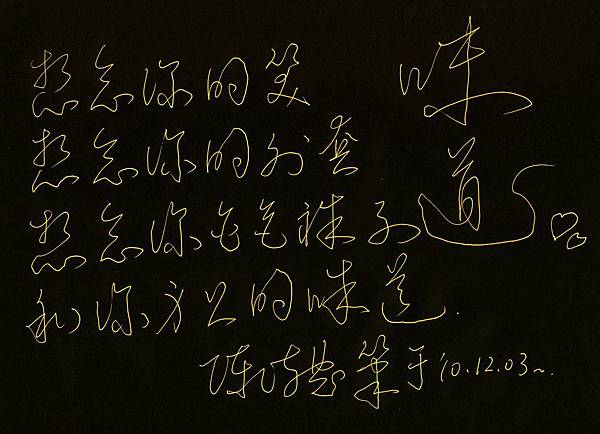 味道
想念你的笑
想念你的外套
想念你白色袜子
和你身上的味道.
陈 笔于'10.12.03~.